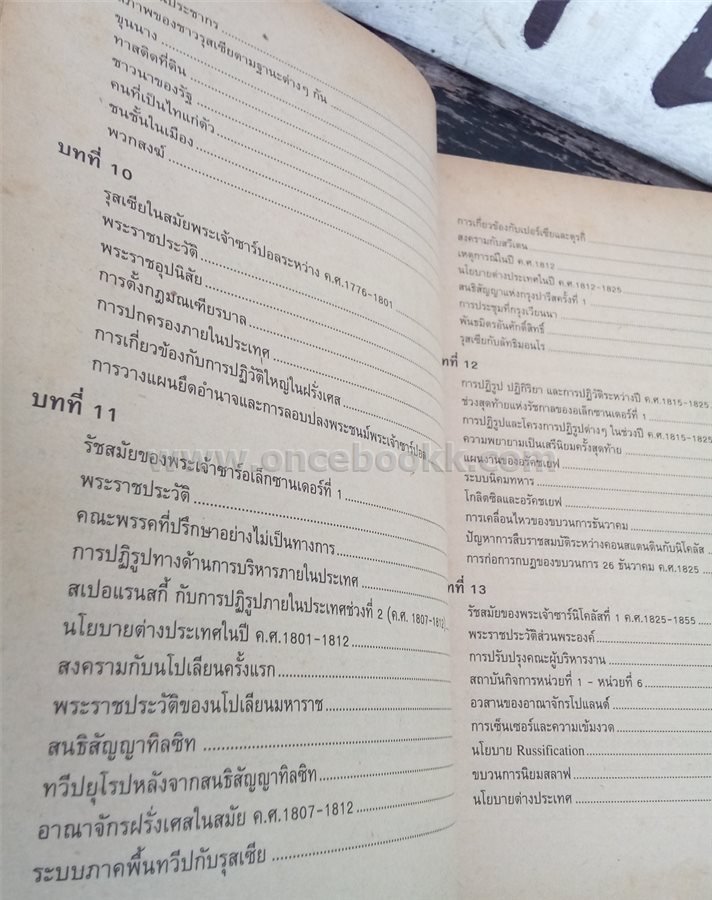 ประชากร
ภาพของชาวรุสเซียตามฐานะต่างๆ กัน
ขุนนาง
ทาสติดที่ดิน
ชาวนาของรัฐ
คนที่เป็นไทแก่ตัว
ชนชั้นในเมือง
พวกสงฆ์
บทที่ 10
รุสเซียในสมัยพระเจ้าซาร์ปอลระหว่าง ค.ศ.1776-1801
พระราชประวัติ
พระราชอุปนิสัย
การตั้งกฎมณเฑียรบาล
การปกครองภายในประเทศ
การเกี่ยวข้องกับการปฏิวัติใหญ่ในฝรั่งเศส
การวางแผนยึดอำนาจและการลอบปลงพระชนม์พระเจ้าซาร์ปอล
บทที่ 11
รัชสมัยของพระเจ้าซาร์อเล็กซานเดอร์ที่ 1
พระราชประวัติ
คณะพรรคที่ปรึกษาอย่างไม่เป็นทางการ
การปฏิรูปทางด้านการบริหารภายในประเทศ
สเปอแรนสกี้ กับการปฏิรูปภายในประเทศช่วงที่ 2 (ค.ศ. 1807-1812)
นโยบายต่างประเทศในปี ค.ศ.1801-1812
สงครามกับนโปเลียนครั้งแรก
พระราชประวัติของนโปเลียนมหาราช
สนธิสัญญาทิลซิท
ทวีปยุโรปหลังจากสนธิสัญญาทิลซิท
อาณาจักรฝรั่งเศสในสมัย ค.ศ.1807-1812
ระบบภาคพื้นทวีปกับรุสเซีย
การเกี่ยวข้องกับเปอร์เซียและตุรกี
สงครามกับสวีเดน
เหตุการณ์ในปี ค.ศ.1812
นโยบายต่างประเทศในปี ค.ศ.1812-1825
สนธิสัญญาแห่งกรุงปารีสครั้งที่ 1
การประชุมที่กรุงเวียนนา
พันธมิตรอันศักดิ์สิทธิ์
รุสเซียกับลัทธิมอนโร
ทที่ 12
การปฏิรูป ปฏิกิริยา และการปฏิวัติระหว่างปี ค.ศ.1815-1825
ช่วงสุดท้ายแห่งรัชกาลของอเล็กซานเดอร์ที่ 1
การปฏิรูปและโครงการปฏิรูปต่างๆ ในช่วงปี ค.ศ.1815-1825
ความพยายามเป็นเสรีนิยมครั้งสุดท้าย
แผนงานของอรัคชเยฟ
ระบบนิคมทหาร
โกลิตซิลและอรัคชเยฟ
การเคลื่อนไหวของขบวนการธันวาคม
ปัญหาการสืบราชสมบัติระหว่างคอนสแตนตินกับนิโคลัส
การก่อการกบฏของขบวนการ 26 ธันวาคม ค.ศ.1825
ทที่ 13
รัชสมัยของพระเจ้าซาร์นิโคลัสที่ 1 ค.ศ.1825-1855
พระราชประวัติส่วนพระองค์
การปรับปรุงคณะผู้บริหารงาน
สถาบันกิจการหน่วยที่ 1 - หน่วยที่ 6
อวสานของอาณาจักรโปแลนด์
การเซ็นเซอร์และความเข้มงวด
นโยบาย Russification
ขบวนการนิยมสลาฟ
นโยบายต่างประเทศ
www.oncebookk.com